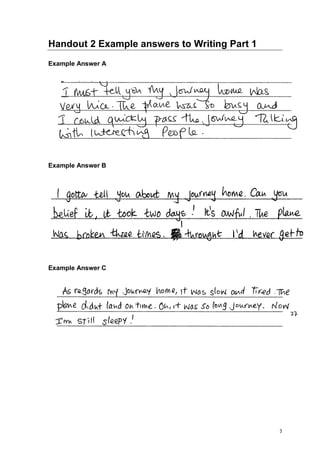 Handout 2 Example answers to Writing Part 1
Example Answer A
I must tell you my journey home was
very nice. The plane was so busy and
I could quickly pass the journey Talking
with interesting People.
Example Answer B
I gotta tell you about my journey home. Can you
belief it, it took two days! It's awful. The plane
was broken three times. I throught I'd never get to
Example Answer C
As regards my journey home, it was slow and tired. The
plane didnt land on time. Oh, it was so long journey. Now
27
I'm still sleepy!
3